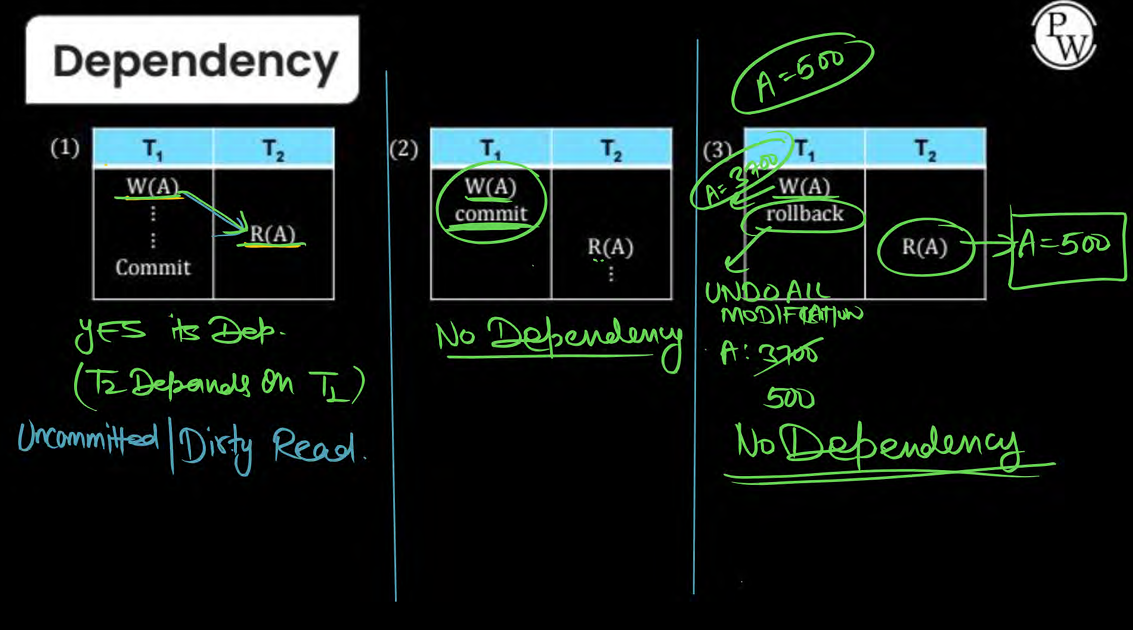 Dependency
PW
(1)
T1 T2
W(A)
R(A)
Commit
YES its Dep.
(T2 Depends on T1)
Uncommitted | Dirty Read.
(2)
T1 T2
W(A)
commit
R(A)
No Dependency
A=500
(3)
T1 T2
A=3700
W(A)
rollback
R(A)
A=500
UNDO ALL
MODIFICATION
A: 3700
500
No Dependency